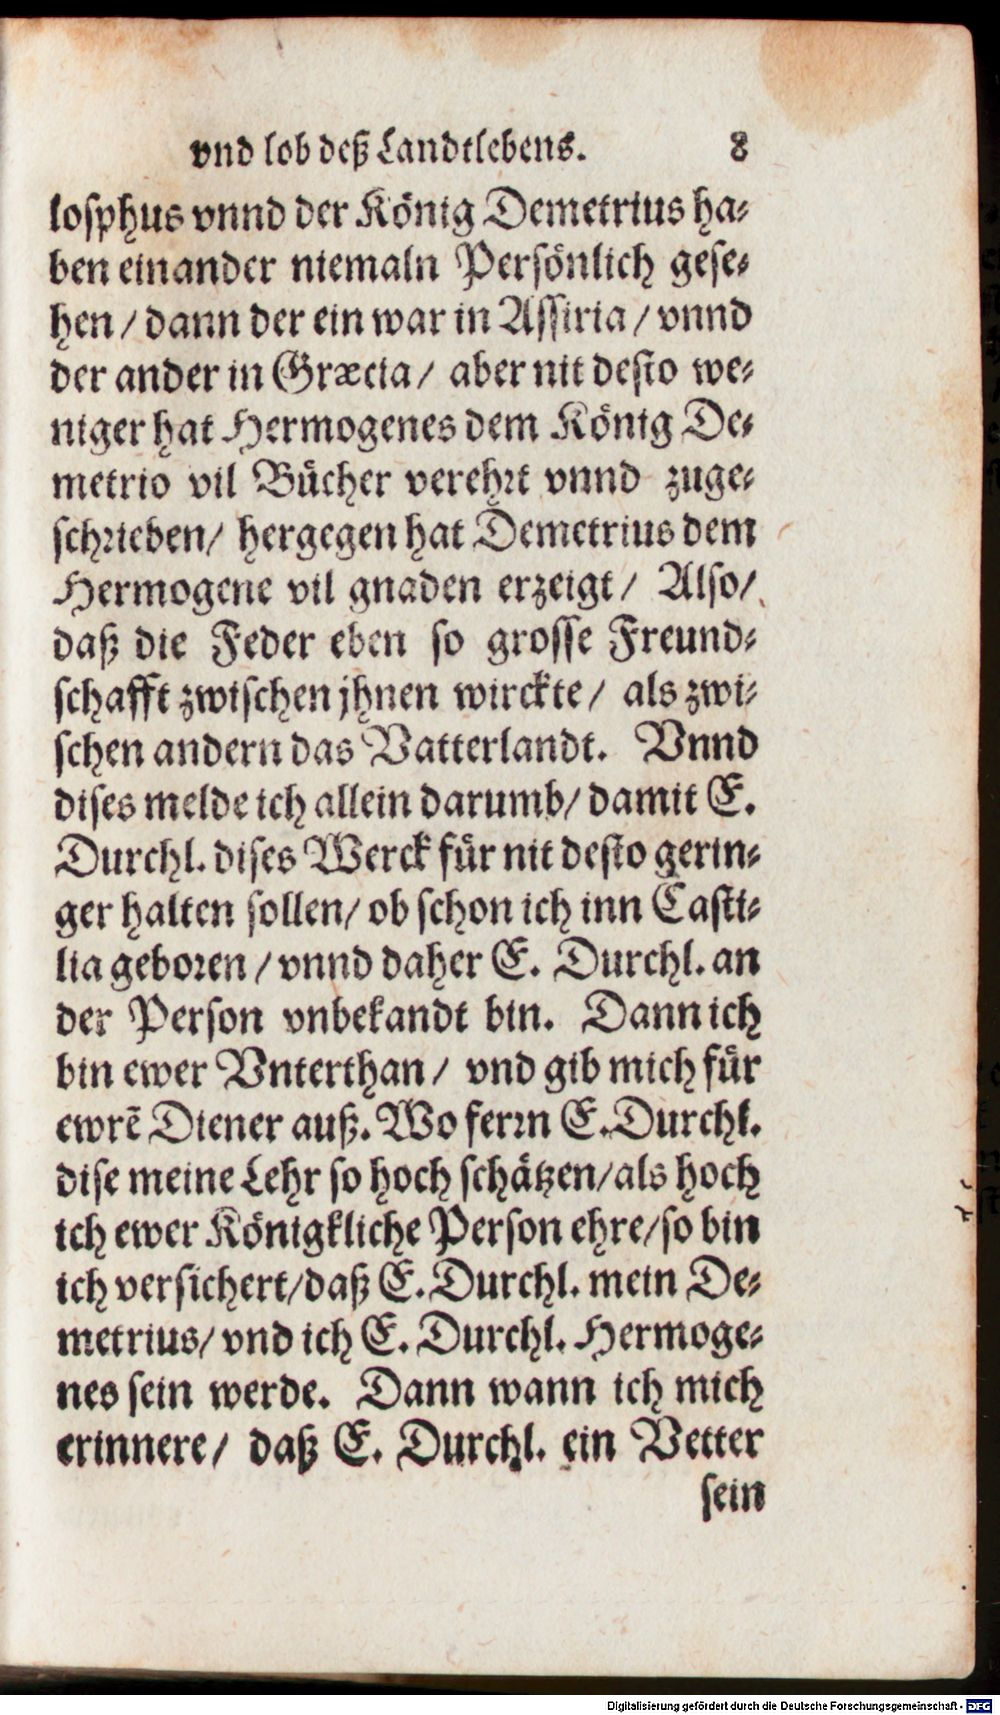 vnd lob deß Landtlebens. 8
losphus vnnd der König Demetrius ha-
ben einander niemaln Persönlich gese-
hen / dann der ein war in Assiria / vnnd
der ander in Græcia / aber nit desto we-
niger hat Hermogenes dem König De-
metrio vil Bücher verehrt vnnd zuge-
schrieben / hergegen hat Demetrius dem
Hermogene vil gnaden erzeigt / Also /
daß die Feder eben so grosse Freund-
schafft zwischen jhnen wirckte / als zwi-
schen andern das Vatterlandt. Vnnd
dises melde ich allein darumb / damit E.
Durchl. dises Werck für nit desto gerin-
ger halten sollen / ob schon ich inn Casti-
lia geboren / vnnd daher E. Durchl. an
der Person vnbekandt bin. Dann ich
bin ewer Vnterthan / vnd gib mich für
ewrē Diener auß. Wo ferrn E. Durchl.
dise meine Lehr so hoch schätzen / als hoch
ich ewer Königkliche Person ehre / so bin
ich versichert / daß E. Durchl. mein De-
metrius / vnd ich E. Durchl. Hermoge-
nes sein werde. Dann wann ich mich
erinnere / daß E. Durchl. ein Vetter
sein
Digitalisierung gefördert durch die Deutsche Forschungsgemeinschaft - DFG